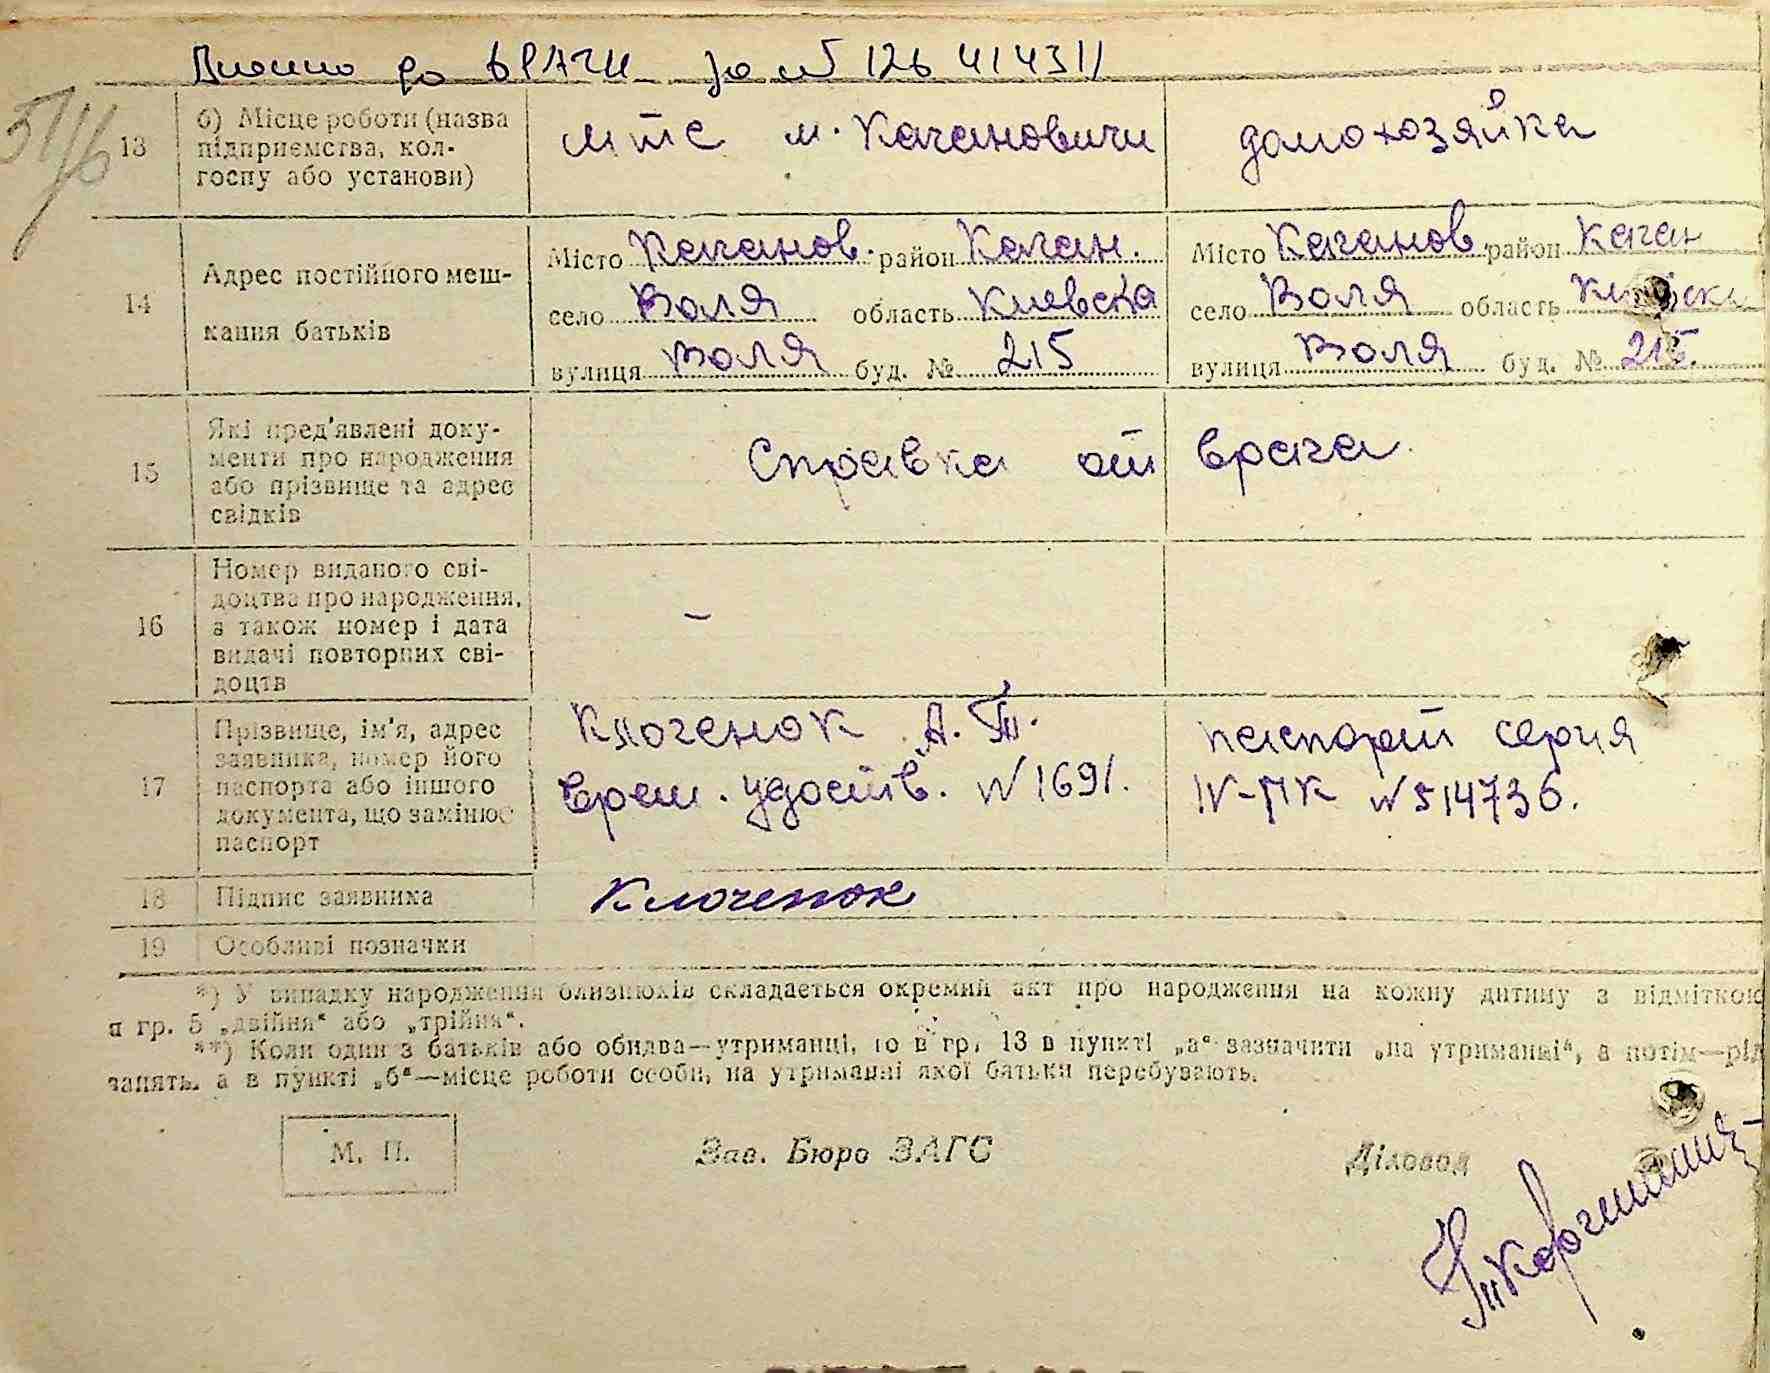 до ВРАЧИ за № 126 414311
13 б) Місце роботи (назва підприємства, колгоспу або установи)
мтс м. Качановичи
домохозяйка
14 Адрес постійного мешкання батьків
Місто Каганов. район Каган.
село Воля область Киевска
вулиця Воля буд. № 215
Місто Каганов район Каган
село Воля область
вулиця Воля буд. № 215.
15 Які пред'явлені документи про народження або прізвище та адрес свідків
Справка от врача.
16 Номер виданого свідоцтва про народження, а також номер і дата видачі повторних свідоцтв
–
17 Прізвище, ім'я, адрес заявника, номер його паспорта або іншого документа, що замінює паспорт
Клоченок А. Т.
врем. удостов. № 1691.
паспорт серия
IV-ПК № 514736.
18 Підпис заявника
Клоченок
19 Особливі позначки
*) У випадку народження близнюків складається окремий акт про народження на кожну дитину з відміткою
в гр. 5 „двійня“ або „трійня“.
**) Коли один з батьків або обидва—утриманці, то в гр. 13 в пункті „а“ зазначити „на утриманні“, а потім—рід
занять, а в пункті „б“—місце роботи особи, на утриманні якої батьки перебувають.
М. П.
Зав. Бюро ЗАГС
Діловод